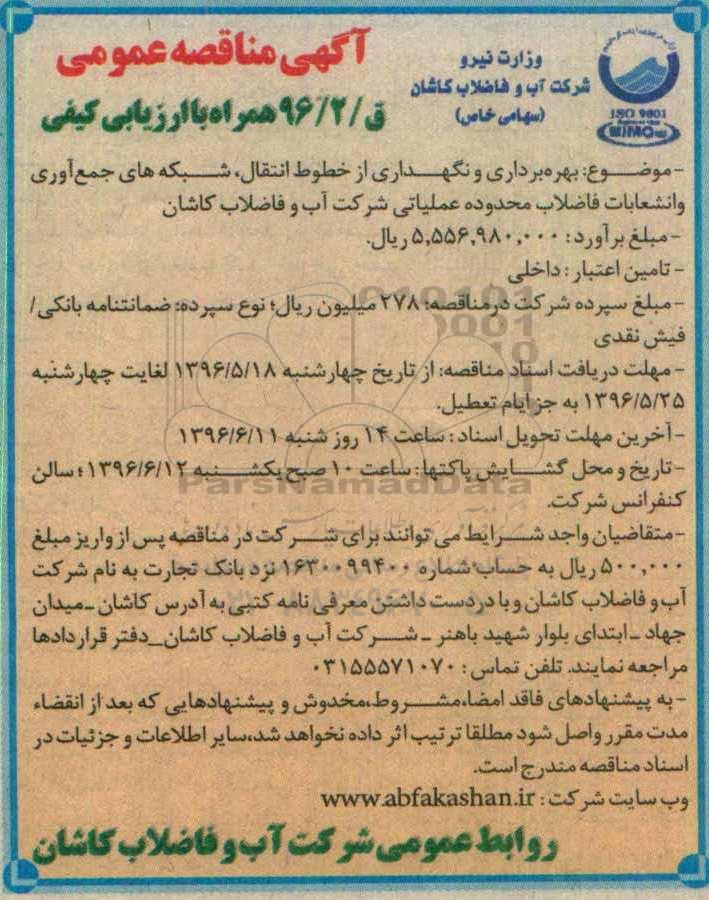 آگهی مناقصه عمومی
ق/۹۶/۲ همراه با ارزیابی کیفی
وزارت نیرو
شرکت آب و فاضلاب کاشان
(سهامی خاص)
ISO 9001
-موضوع: بهره‌برداری و نگهداری از خطوط انتقال، شبکه های جمع‌آوری
وانشعابات فاضلاب محدوده عملیاتی شرکت آب و فاضلاب کاشان
-مبلغ برآورد: ۵,۵۵۶,۹۸۰,۰۰۰ ریال.
-تامین اعتبار: داخلی
-مبلغ سپرده شرکت درمناقصه: ۲۷۸ میلیون ریال؛ نوع سپرده: ضمانتنامه بانکی/
فیش نقدی
-مهلت دریافت اسناد مناقصه: از تاریخ چهارشنبه ۱۳۹۶/۵/۱۸ لغایت چهارشنبه
۱۳۹۶/۵/۲۵ به جز ایام تعطیل.
-آخرین مهلت تحویل اسناد: ساعت ۱۴ روز شنبه ۱۳۹۶/۶/۱۱
-تاریخ و محل گشایش پاکتها: ساعت ۱۰ صبح یکشنبه ۱۳۹۶/۶/۱۲؛ سالن
کنفرانس شرکت.
ParsNamadData
-متقاضیان واجد شرایط می توانند برای شرکت در مناقصه پس از واریز مبلغ
۵۰۰,۰۰۰ ریال به حساب شماره ۱۶۳۰۰۹۹۴۰۰ نزد بانک تجارت به نام شرکت
آب و فاضلاب کاشان و با دردست داشتن معرفی نامه کتبی به آدرس کاشان ـ میدان
جهاد ـ ابتدای بلوار شهید باهنر ـ شرکت آب و فاضلاب کاشان_دفتر قراردادها
مراجعه نمایند. تلفن تماس: ۰۳۱۵۵۵۷۱۰۷۰
-به پیشنهادهای فاقد امضا،مشروط،مخدوش و پیشنهادهایی که بعد از انقضاء
مدت مقرر واصل شود مطلقا ترتیب اثر داده نخواهد شد،سایر اطلاعات و جزئیات در
اسناد مناقصه مندرج است.
وب سایت شرکت: www.abfakashan.ir
روابط عمومی شرکت آب و فاضلاب کاشان